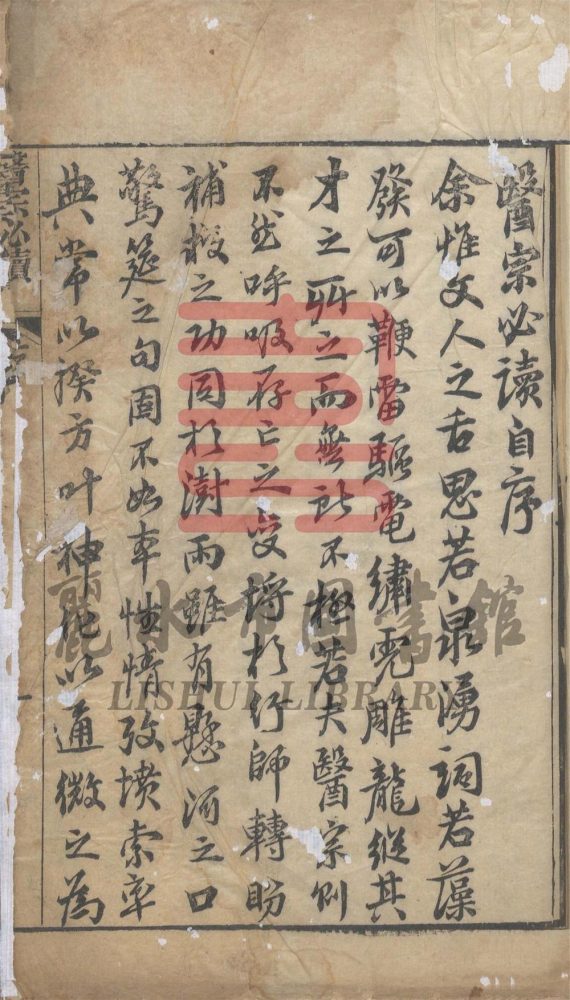 醫宗必讀自序
余惟文人之舌思若泉湧詞若藻
發可以鞭雷驅電繡虎雕龍縱其
才之所之而無所不極若夫醫宗則
不然呼吸存亡之變埒於行師轉盼
補救之功同於澍雨雖有懸河之口
驚筵之句固不如本性情攷墳索率
典常以揆方叶神化以通微之為
醫宗必讀
麗水市圖書館
LISHUI LIBRARY